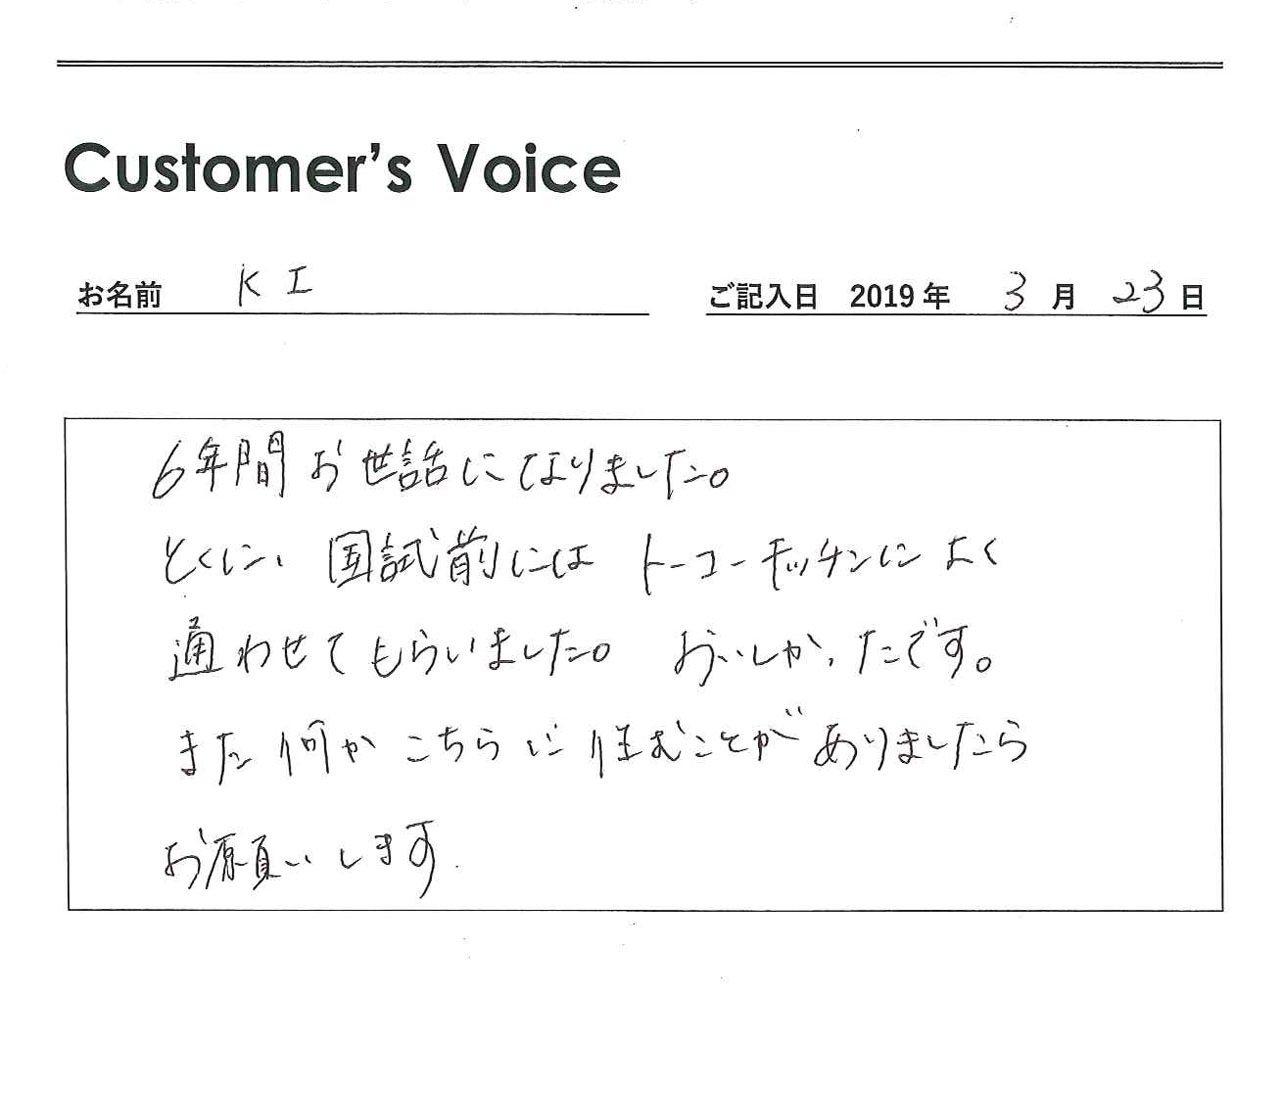 Customer's Voice
お名前 K I
ご記入日 2019 年 3 月 23 日
6年間お世話になりました。
とくに、国試前にはトーコーキッチンによく
通わせてもらいました。おいしかったです。
また何かこちらに住むことがありましたら
お願いします.